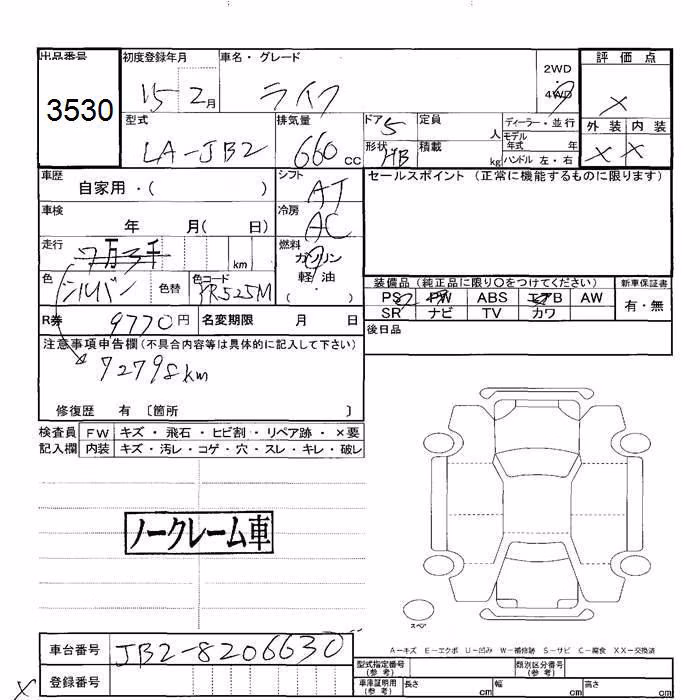 出品番号 初度登録年月 車名・グレード 2WD 評価点
3530 15 2月 ライフ 4WD ×
型式 排気量 ドア 5 定員 人 ディーラー・並行 外装 内装
モデル年式 年
LA-JB2 660cc 形状 HB 積載 kg ハンドル 左・右 × ×
車歴 自家用・( ) シフト AT セールスポイント (正常に機能するものに限ります)
車検 年 月( 日) 冷房 AC
走行 7万3千 km 燃料 ガソリン
軽油・( )
色 シルバー 色替 色コード YR525M 装備品 (純正品に限り〇をつけてください) 新車保証書
PS PW ABS エアB AW 有・無
SR ナビ TV カワ
R券 9770円 名変期限 月 日 後日品
注意事項申告欄(不具合内容等は具体的に記入して下さい)
72798km
修復歴 有 〔箇所 〕
検査員 FW キズ・飛石・ヒビ割・リペア跡・×要
記入欄 内装 キズ・汚レ・コゲ・穴・スレ・キレ・破レ
ノークレーム車
スペア
A-キズ E-エクボ U-凹み W-補修跡 S-サビ C-腐食 XX-交換済
車台番号 JB2-8206630
型式指定番号(参考) 類別区分番号(参考)
登録番号 車庫証明用(参考) 長さ cm 幅 cm 高さ cm
×